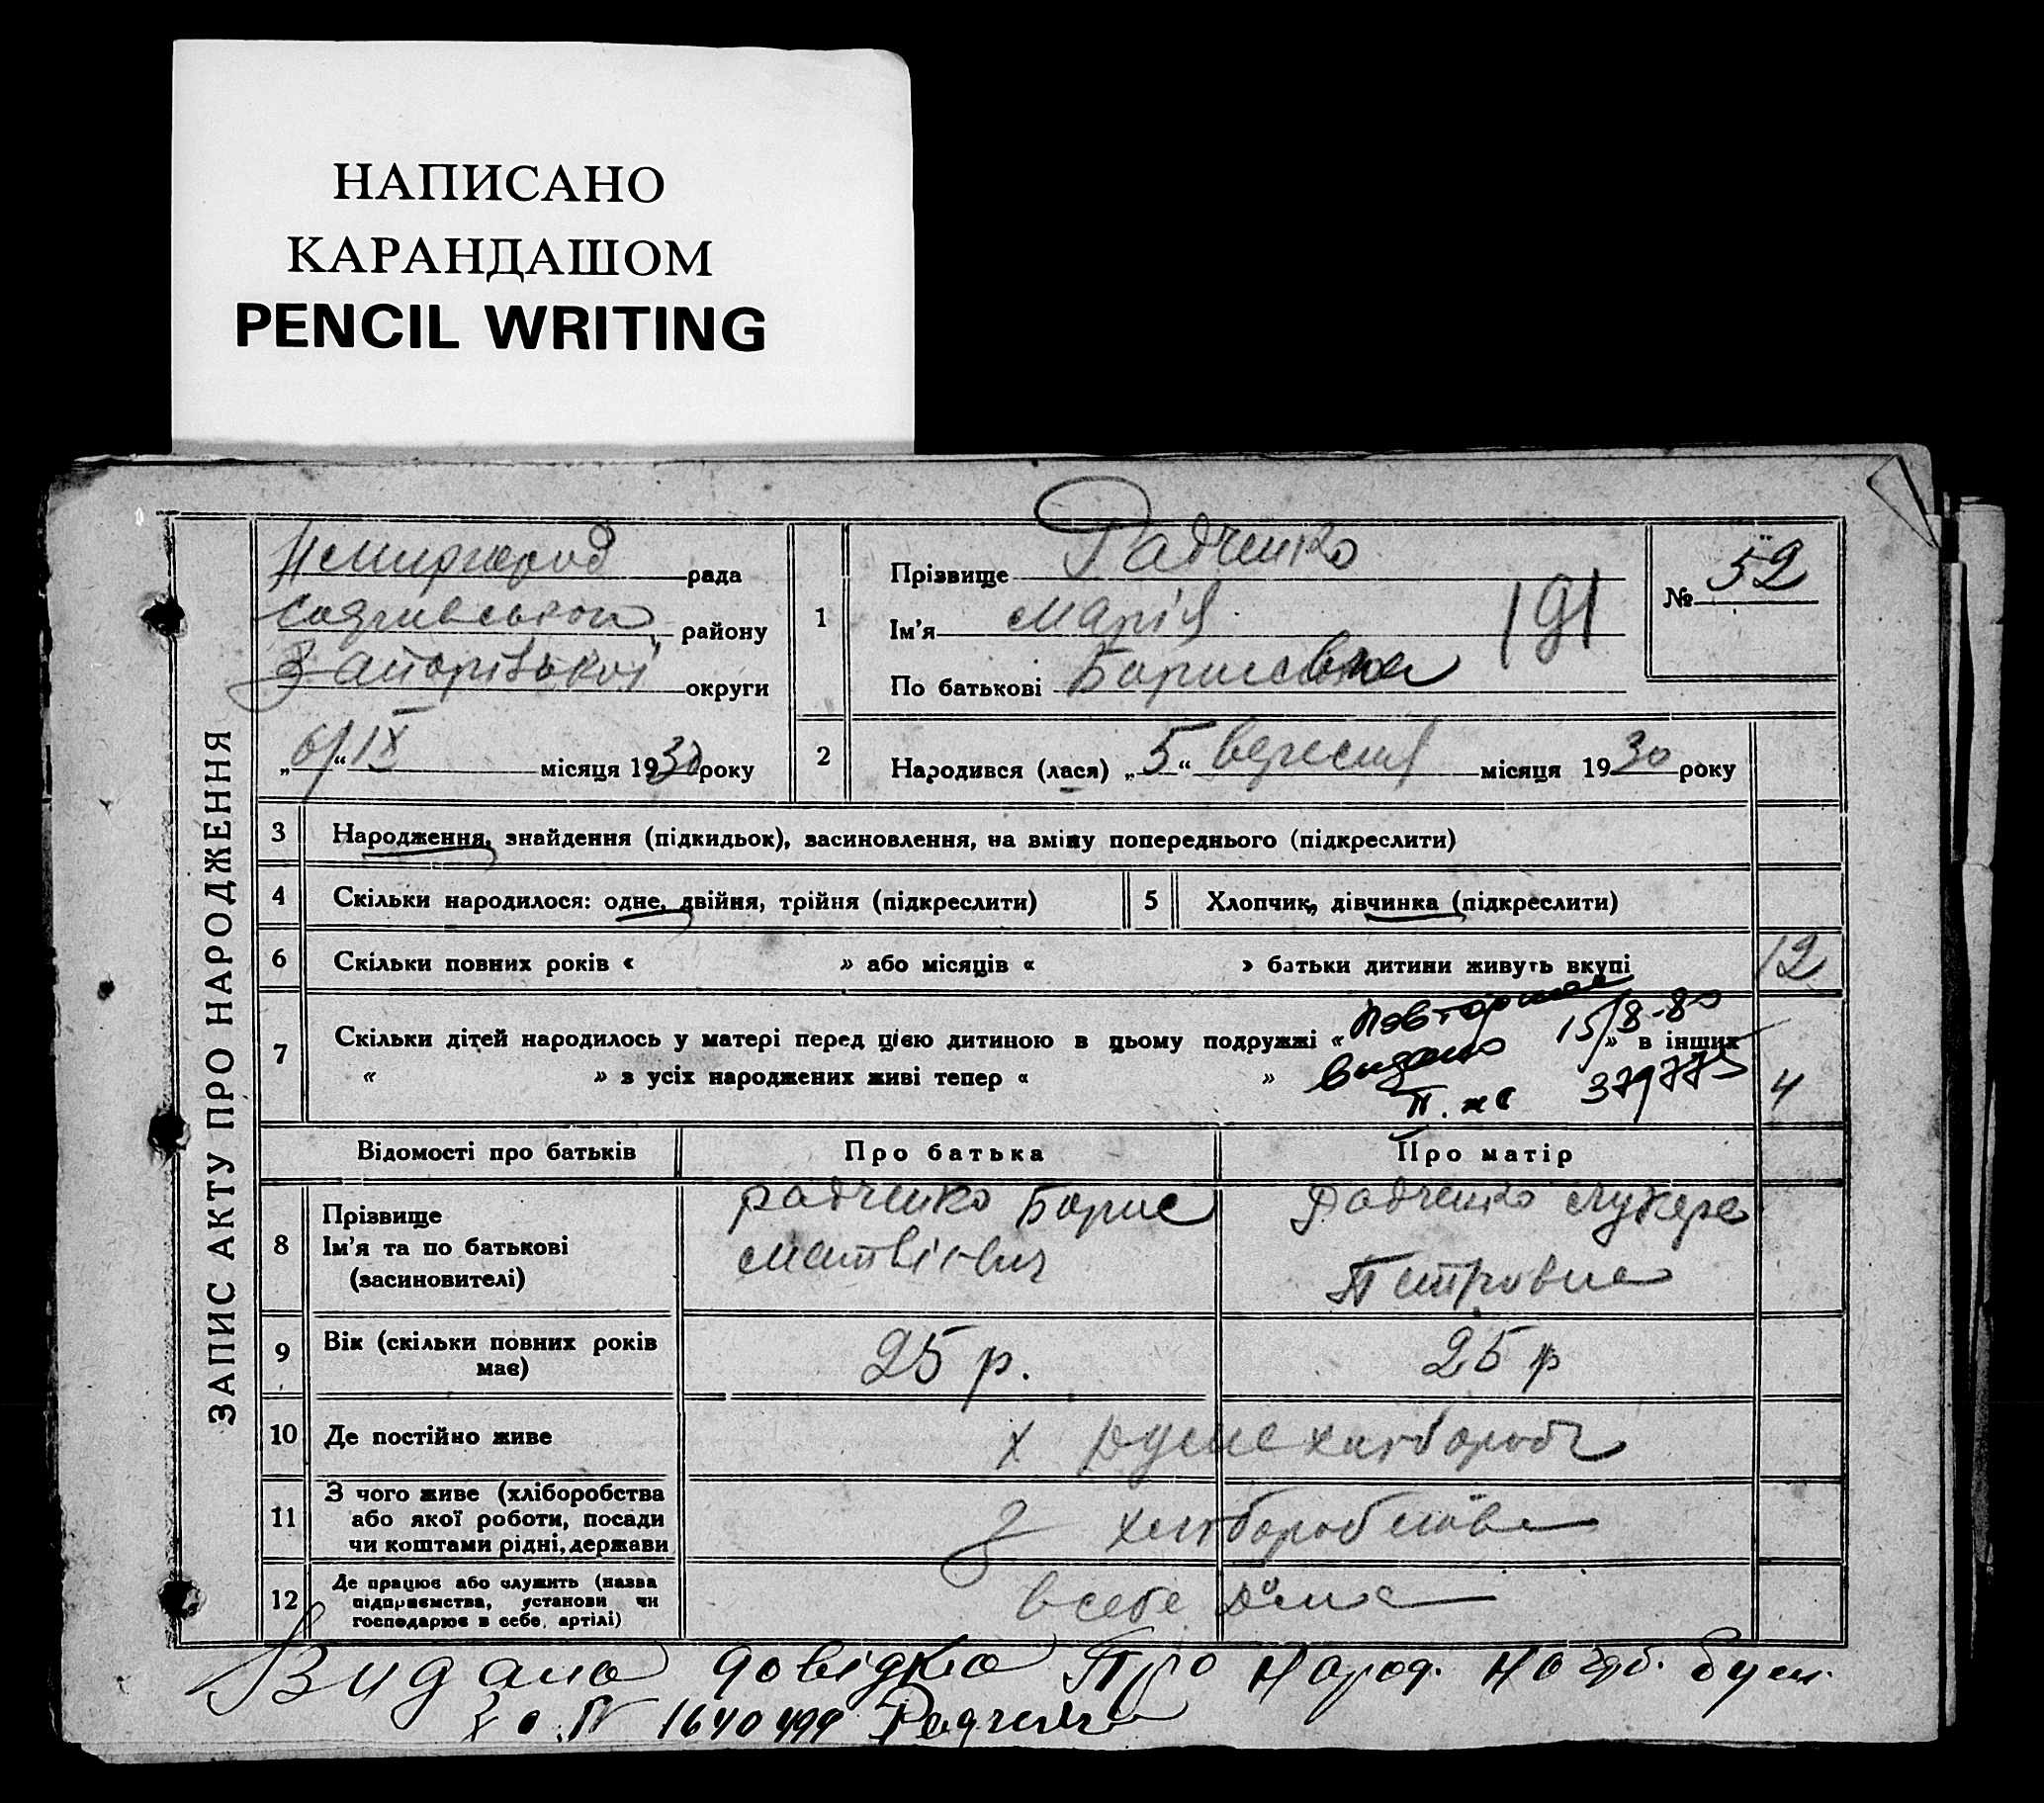 НАПИСАНО
КАРАНДАШОМ
PENCIL WRITING
ЗАПИС АКТУ ПРО НАРОДЖЕННЯ
рада
району
Запорізької округи
„6/“ IX місяця 1930 року
1 Прізвище Радченко
Ім'я Марія
По батькові Борисовна
191
№ 52
2 Народився (лася) „5“ вересня місяця 1930 року
3 Народження, знайдення (підкидьок), засиновлення, на вміну попереднього (підкреслити)
4 Скільки народилося: одне, двійня, трійня (підкреслити)
5 Хлопчик, дівчинка (підкреслити)
6 Скільки повних років « » або місяців « » батьки дитини живуть вкупі
12
7 Скільки дітей народилось у матері перед цією дитиною в цьому подружжі « » в інших
« » з усіх народжених живі тепер « »
Повторное 15/8-80
видано 379773
4
Відомості про батьків Про батька Про матір
8 Прізвище
Ім'я та по батькові
(засиновителі)
Радченко Борис
Матвієвич
Радченко Лукера
Петровна
9 Вік (скільки повних років
має)
25 р. 25 р
10 Де постійно живе
х
11 З чого живе (хліборобства
або якої роботи, посади
чи коштами рідні, держави
З хліборобства
12 Де працює або служить (назва
підприємства, установи чи
господарює в себе, артілі)
в себе дома
Видана довідка Про Народ.
За № 1640499 Радченко